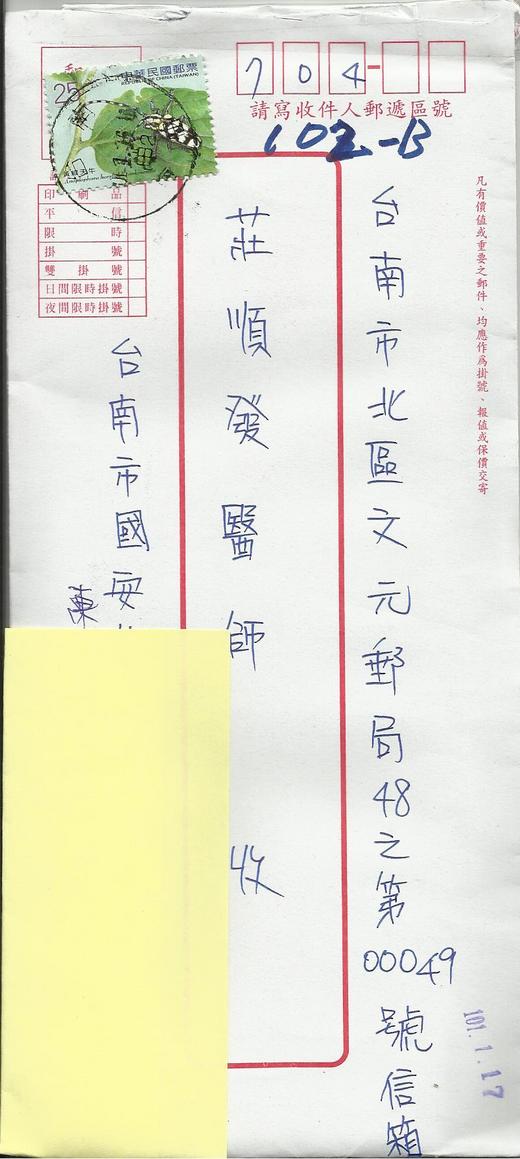 704
請寫收件人郵遞區號
102-B
凡有價值或重要之郵件、均應作為掛號、報值或保價交寄
台南市北區文元郵局48之第00049號信箱
101.1.17
莊順發醫師 收
25
中華民國郵票
REPUBLIC OF CHINA (TAIWAN)
印刷品
平信
限時
掛號
雙掛號
日間限時掛號
夜間限時掛號
台南市國安